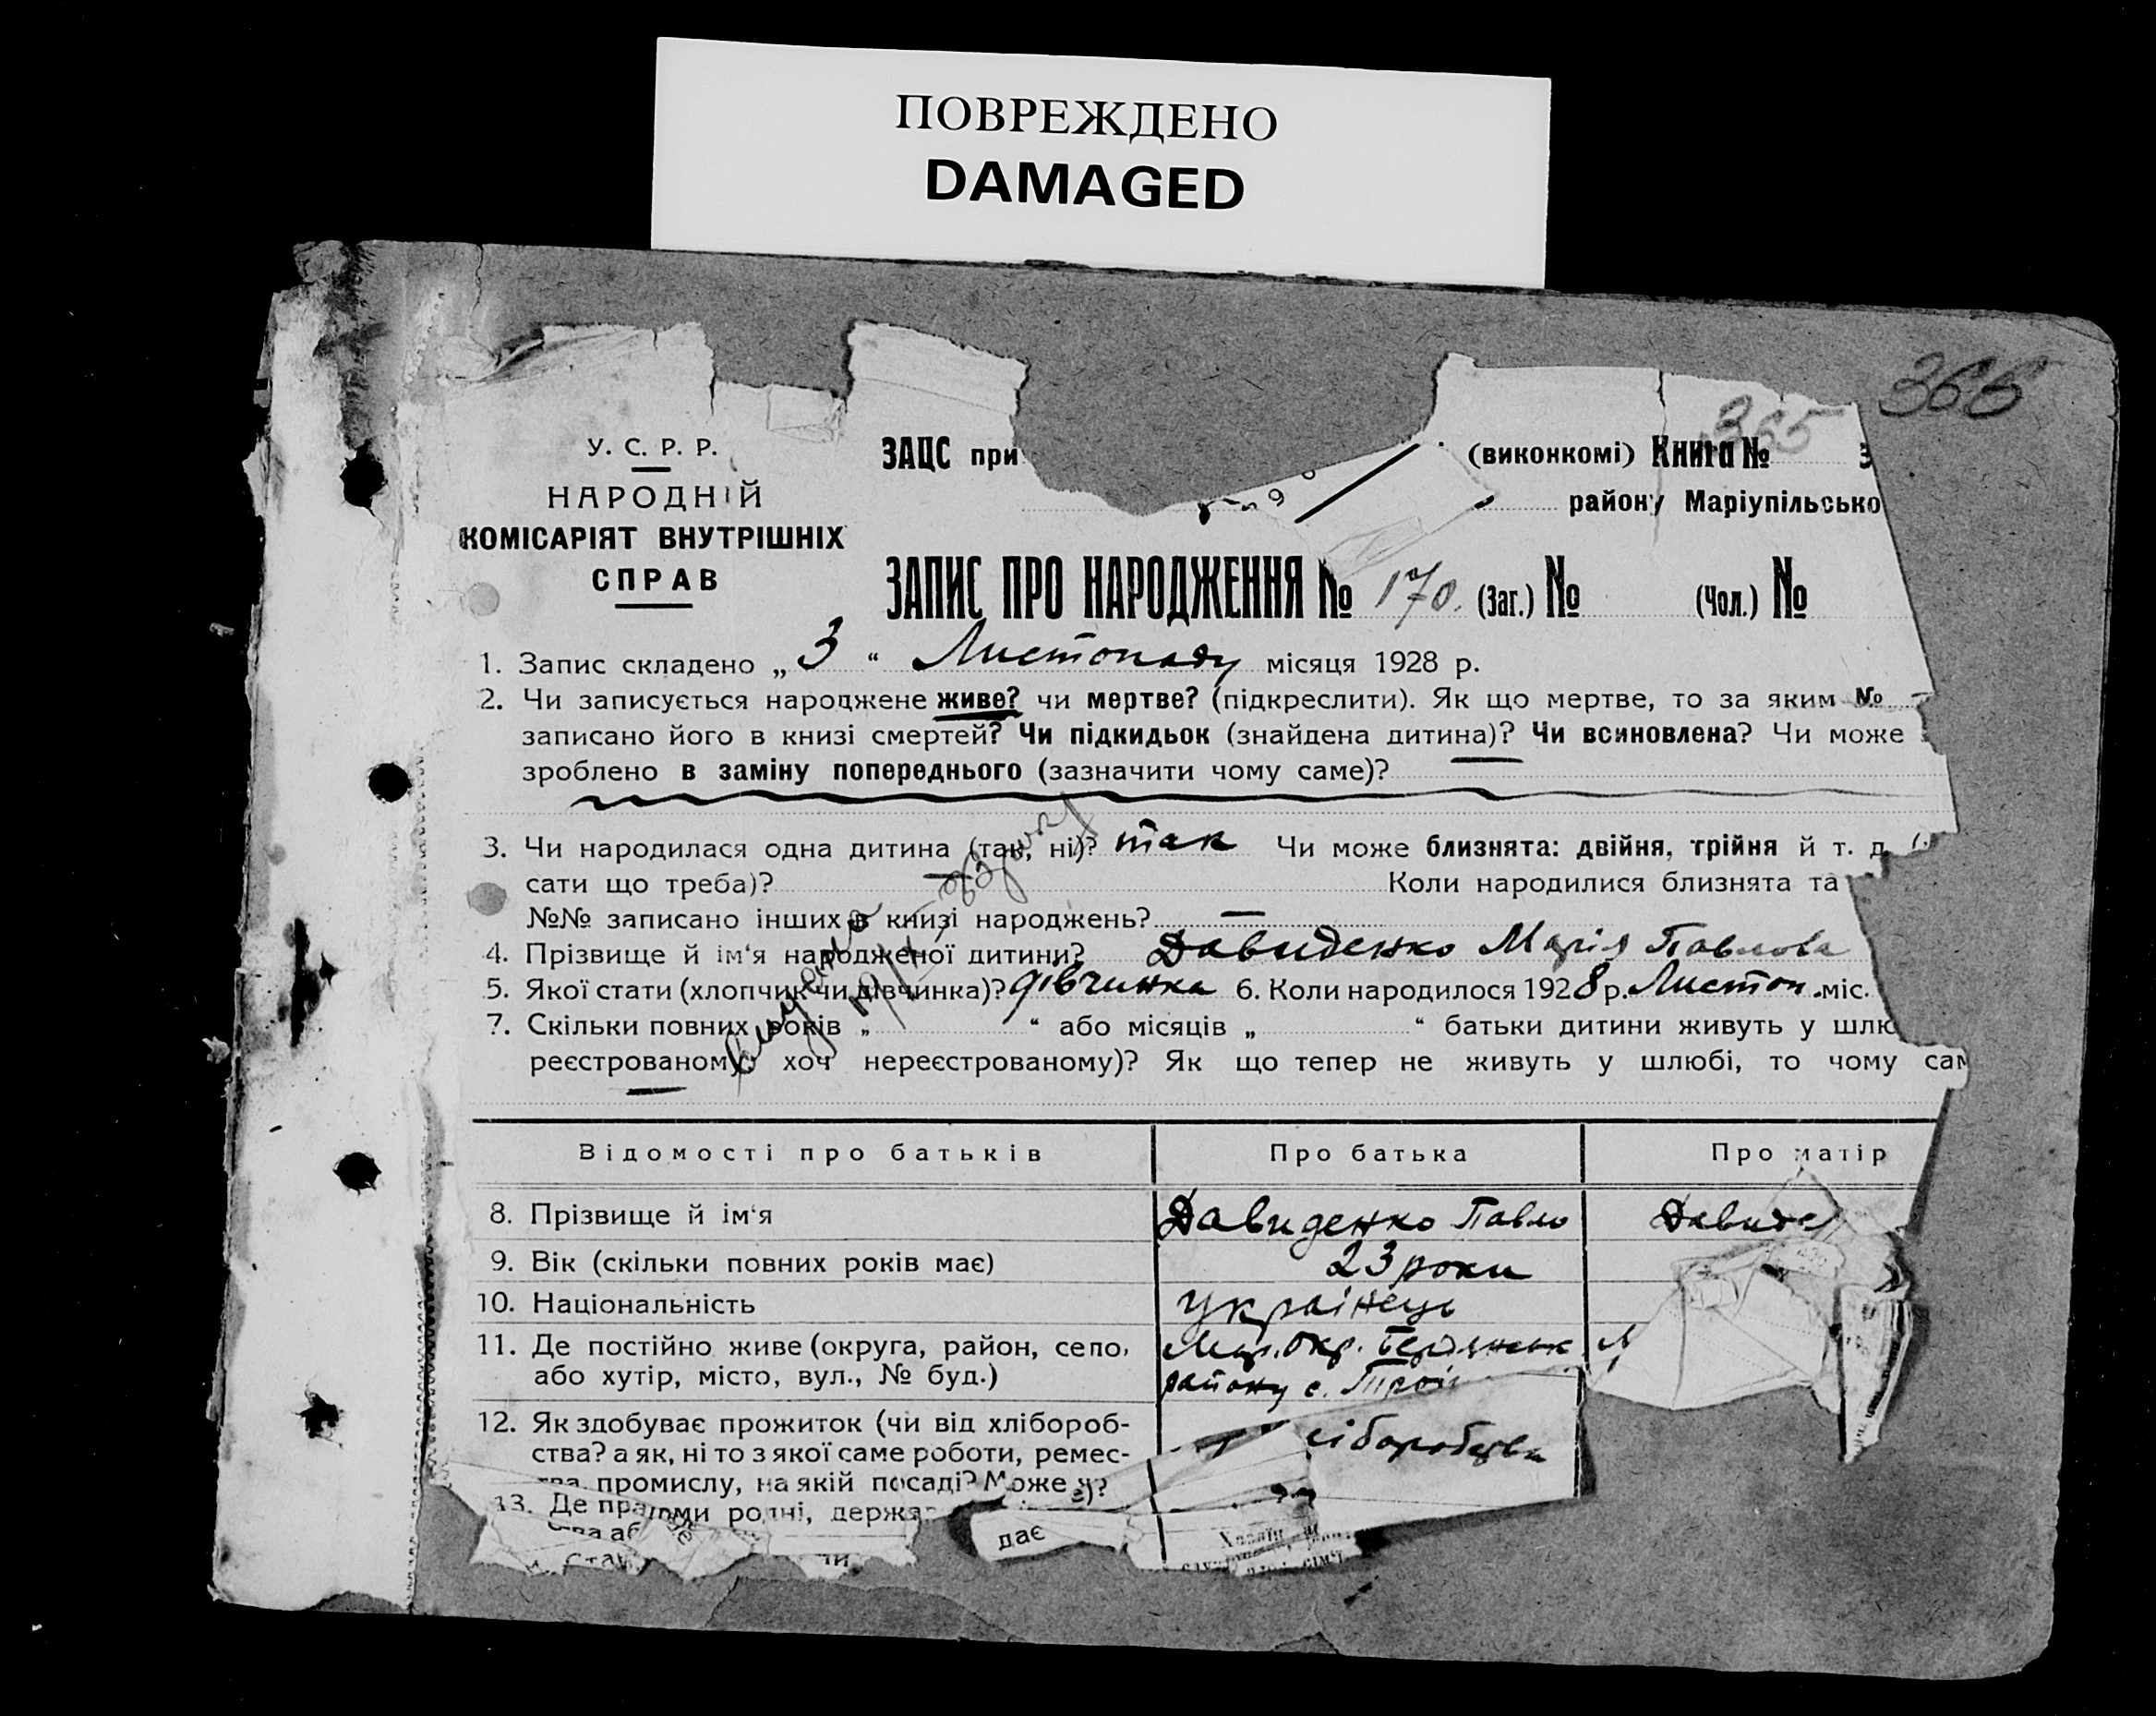 ПОВРЕЖДЕНО
DAMAGED
366
365
У. С. Р. Р.
НАРОДНІЙ
КОМІСАРІЯТ ВНУТРІШНІХ
СПРАВ
ЗАЦС при
(виконкомі) Книга №
району Маріупільсько
ЗАПИС ПРО НАРОДЖЕННЯ № 170. (Заг.) № (Чол.) №
1. Запис складено „ 3 “ Листопаду місяця 1928 р.
2. Чи записується народжене живе? чи мертве? (підкреслити). Як що мертве, то за яким №
записано його в книзі смертей? Чи підкидьок (знайдена дитина)? Чи всиновлена? Чи може
зроблено в заміну попереднього (зазначити чому саме)?
3. Чи народилася одна дитина (так, ні)? так Чи може близнята: двійня, трійня й т. д.
сати що треба)? Коли народилися близнята та
№№ записано інших в книзі народжень?
4. Прізвище й ім‘я народженої дитини? Давиденко Марія Павлова
5. Якої стати (хлопчик чи дівчинка)? дівчинка 6. Коли народилося 1928 р. Листоп. міс.
7. Скільки повних років „ “ або місяців „ “ батьки дитини живуть у шлю
реєстрованому хоч нереєстрованому)? Як що тепер не живуть у шлюбі, то чому сам
Відомості про батьків Про батька Про матір
8. Прізвище й ім‘я Давиденко Павло Давиде
9. Вік (скільки повних років має) 23 роки
10. Національність Українець
11. Де постійно живе (округа, район, село, Мар. Окр. Бердянськ
або хутір, місто, вул., № буд.) району с. Трої
12. Як здобуває прожиток (чи від хлібороб-
ства? а як, ні то з якої саме роботи, ремес- ліборобства
промислу, на якій посаді? Може
13. Де пра
родні, держа
дає